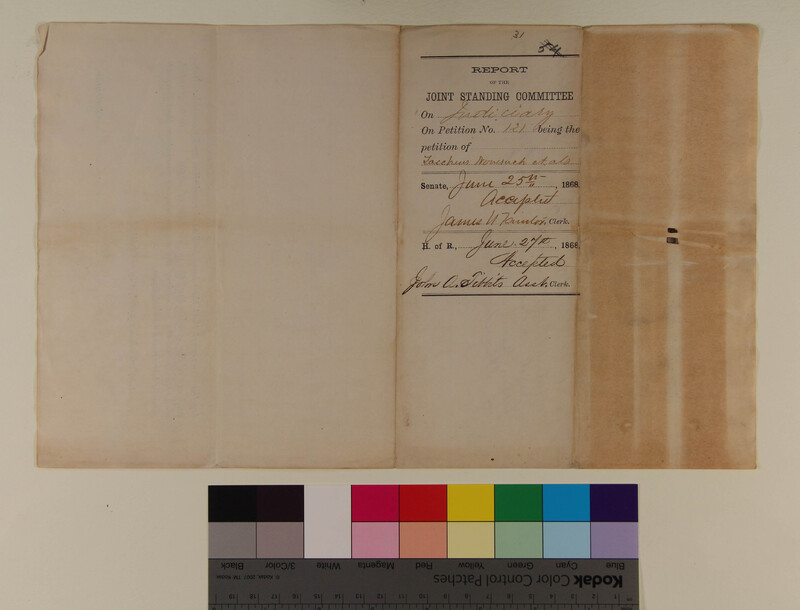 31
54
REPORT
OF THE
JOINT STANDING COMMITTEE
On Judiciary
On Petition No. 121 being the
petition of
et als
Senate, June 25th, 1868,
Accepted
James Clerk.
H. of R., June 27th, 1868
Accepted
John A. Tibbits Asst. Clerk.
Blue
Cyan
Green
Yellow
Red
Magenta
White
3/Color
Black
Kodak Color Control Patches